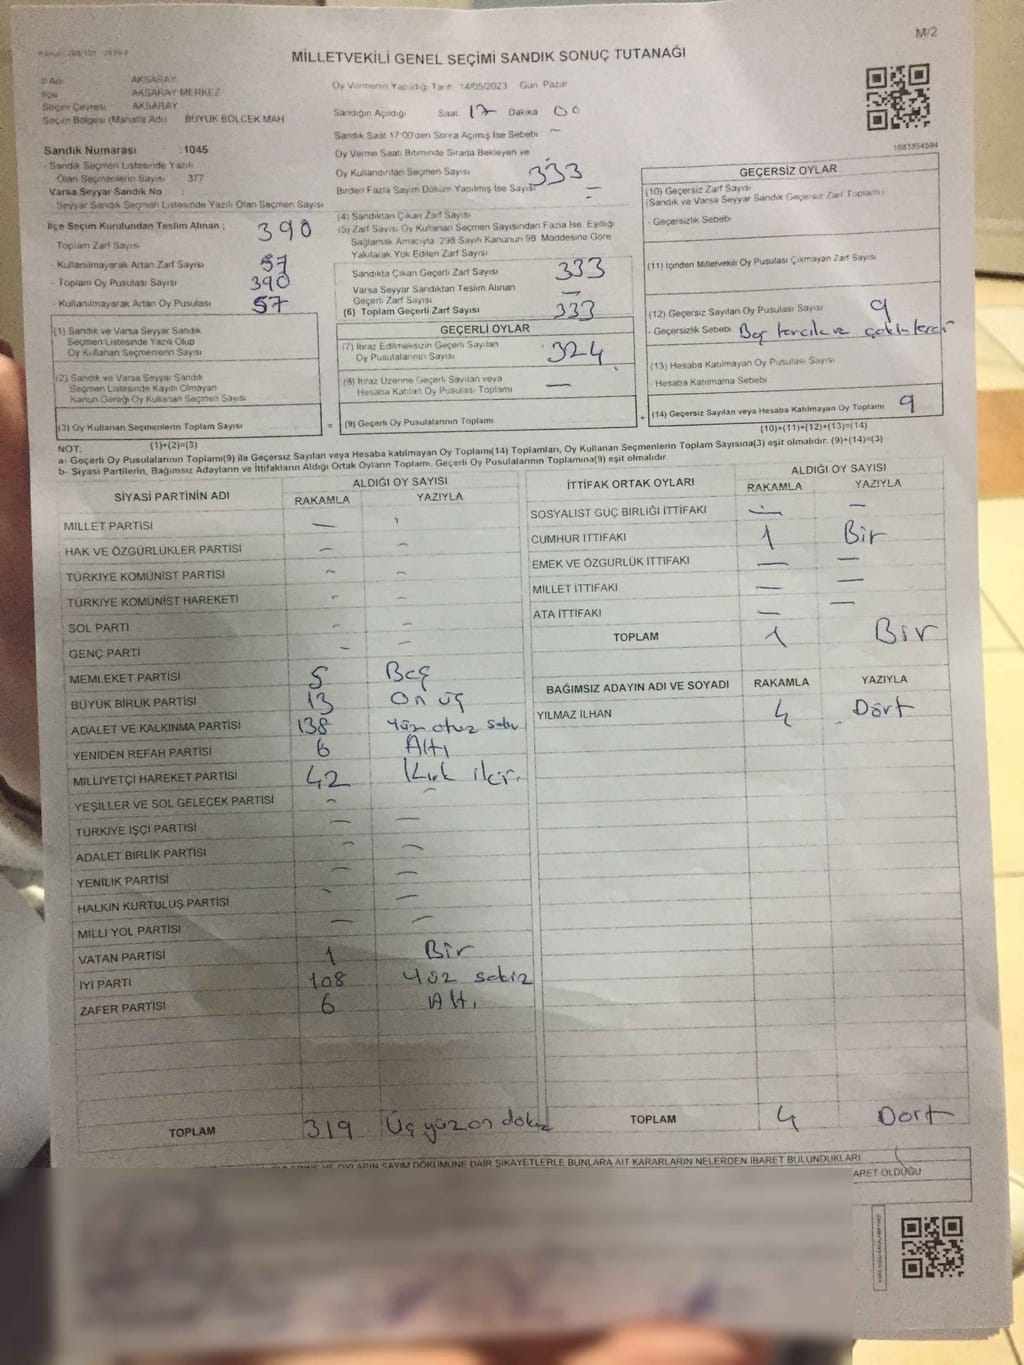 M/2
MİLLETVEKİLİ GENEL SEÇİMİ SANDIK SONUÇ TUTANAĞI
İl Adı AKSARAY
İlçe AKSARAY MERKEZ
Seçim Çevresi AKSARAY
Seçim Bölgesi (Mahalle Adı) BÜYÜK BÖLCEK MAH
Oy Vermenin Yapıldığı Tarih 14/05/2023 Gün Pazar
Sandığın Açıldığı Saat 17 Dakika 00
Sandık Saat 17:00'den Sonra Açmış İse Sebebi —
Oy Verme Saati Bitiminde Sırada Bekleyen ve
Oy Kullandırılan Seçmen Sayısı 333
Birden Fazla Sayım Döküm Yapılmış İse Sayısı —
Sandık Numarası :1045
- Sandık Seçmen Listesinde Yazılı
Olan Seçmenlerin Sayısı 377
Varsa Seyyar Sandık No :
Seyyar Sandık Seçmen Listesinde Yazılı Olan Seçmen Sayısı
İlçe Seçim Kurulundan Teslim Alınan ; 390
Toplam Zarf Sayısı
- Kullanılmayarak Artan Zarf Sayısı 57
- Toplam Oy Pusulası Sayısı 390
- Kullanılmayarak Artan Oy Pusulası 57
(1) Sandık ve Varsa Seyyar Sandık
Seçmen Listesinde Yazılı Olup
Oy Kullanan Seçmenlerin Sayısı
(2) Sandık ve Varsa Seyyar Sandık
Seçmen Listesinde Kayıtlı Olmayan
Kanun Gereği Oy Kullanan Seçmen Sayısı
(3) Oy Kullanan Seçmenlerin Toplam Sayısı
(1)+(2)=(3)
(4) Sandıktan Çıkan Zarf Sayısı
(5) Zarf Sayısı Oy Kullanan Seçmen Sayısından Fazla İse, Eşitliği
Sağlamak Amacıyla 298 Sayılı Kanunun 98. Maddesine Göre
Yakılarak Yok Edilen Zarf Sayısı
Sandıkta Çıkan Geçerli Zarf Sayısı 333
Varsa Seyyar Sandıktan Teslim Alınan
Geçerli Zarf Sayısı —
(6) Toplam Geçerli Zarf Sayısı 333
GEÇERLİ OYLAR
(7) İtiraz Edilmeksizin Geçerli Sayılan
Oy Pusulalarının Sayısı 324
(8) İtiraz Üzerine Geçerli Sayılan veya
Hesaba Katılan Oy Pusulası Toplamı —
= (9) Geçerli Oy Pusulalarının Toplamı +
1083854594
GEÇERSİZ OYLAR
(10) Geçersiz Zarf Sayısı
(Sandık ve Varsa Seyyar Sandık Geçersiz Zarf Toplamı)
- Geçersizlik Sebebi
(11) İçinden Milletvekili Oy Pusulası Çıkmayan Zarf Sayısı
(12) Geçersiz Sayılan Oy Pusulası Sayısı 9
- Geçersizlik Sebebi Boş
(13) Hesaba Katılmayan Oy Pusulası Sayısı
- Hesaba Katılmama Sebebi
(14) Geçersiz Sayılan veya Hesaba Katılmayan Oy Toplamı 9
(10)+(11)+(12)+(13)=(14)
NOT:
a- Geçerli Oy Pusulalarının Toplamı(9) ile Geçersiz Sayılan veya Hesaba katılmayan Oy Toplamı(14) Toplamları, Oy Kullanan Seçmenlerin Toplam Sayısına(3) eşit olmalıdır. (9)+(14)=(3)
b- Siyasi Partilerin, Bağımsız Adayların ve İttifakların Aldığı Ortak Oyların Toplamı, Geçerli Oy Pusulalarının Toplamına(9) eşit olmalıdır.
SİYASİ PARTİNİN ADI ALDIĞI OY SAYISI
RAKAMLA YAZIYLA
MİLLET PARTİSİ —
HAK VE ÖZGÜRLÜKLER PARTİSİ — —
TÜRKİYE KOMÜNİST PARTİSİ — —
TÜRKİYE KOMÜNİST HAREKETİ — —
SOL PARTİ — —
GENÇ PARTİ — —
MEMLEKET PARTİSİ 5 Beş
BÜYÜK BİRLİK PARTİSİ 13 On üç
ADALET VE KALKINMA PARTİSİ 138 Yüz otuz sekiz
YENİDEN REFAH PARTİSİ 6 Altı
MİLLİYETÇİ HAREKET PARTİSİ 42 Kırk iki
YEŞİLLER VE SOL GELECEK PARTİSİ — —
TÜRKİYE İŞÇİ PARTİSİ — —
ADALET BİRLİK PARTİSİ — —
YENİLİK PARTİSİ — —
HALKIN KURTULUŞ PARTİSİ — —
MİLLİ YOL PARTİSİ — —
VATAN PARTİSİ 1 Bir
İYİ PARTİ 108 Yüz sekiz
ZAFER PARTİSİ 6 Altı
TOPLAM 319 Üç yüz on dokuz
İTTİFAK ORTAK OYLARI ALDIĞI OY SAYISI
RAKAMLA YAZIYLA
SOSYALİST GÜÇ BİRLİĞİ İTTİFAKI — —
CUMHUR İTTİFAKI 1 Bir
EMEK VE ÖZGÜRLÜK İTTİFAKI — —
MİLLET İTTİFAKI — —
ATA İTTİFAKI — —
TOPLAM 1 Bir
BAĞIMSIZ ADAYIN ADI VE SOYADI RAKAMLA YAZIYLA
YILMAZ İLHAN 4 Dört
TOPLAM 4 Dört
OYLARIN SAYIM DÖKÜMÜNE DAİR ŞİKAYETLERLE BUNLARA AİT KARARLARIN NELERDEN İBARET BULUNDUKLARI